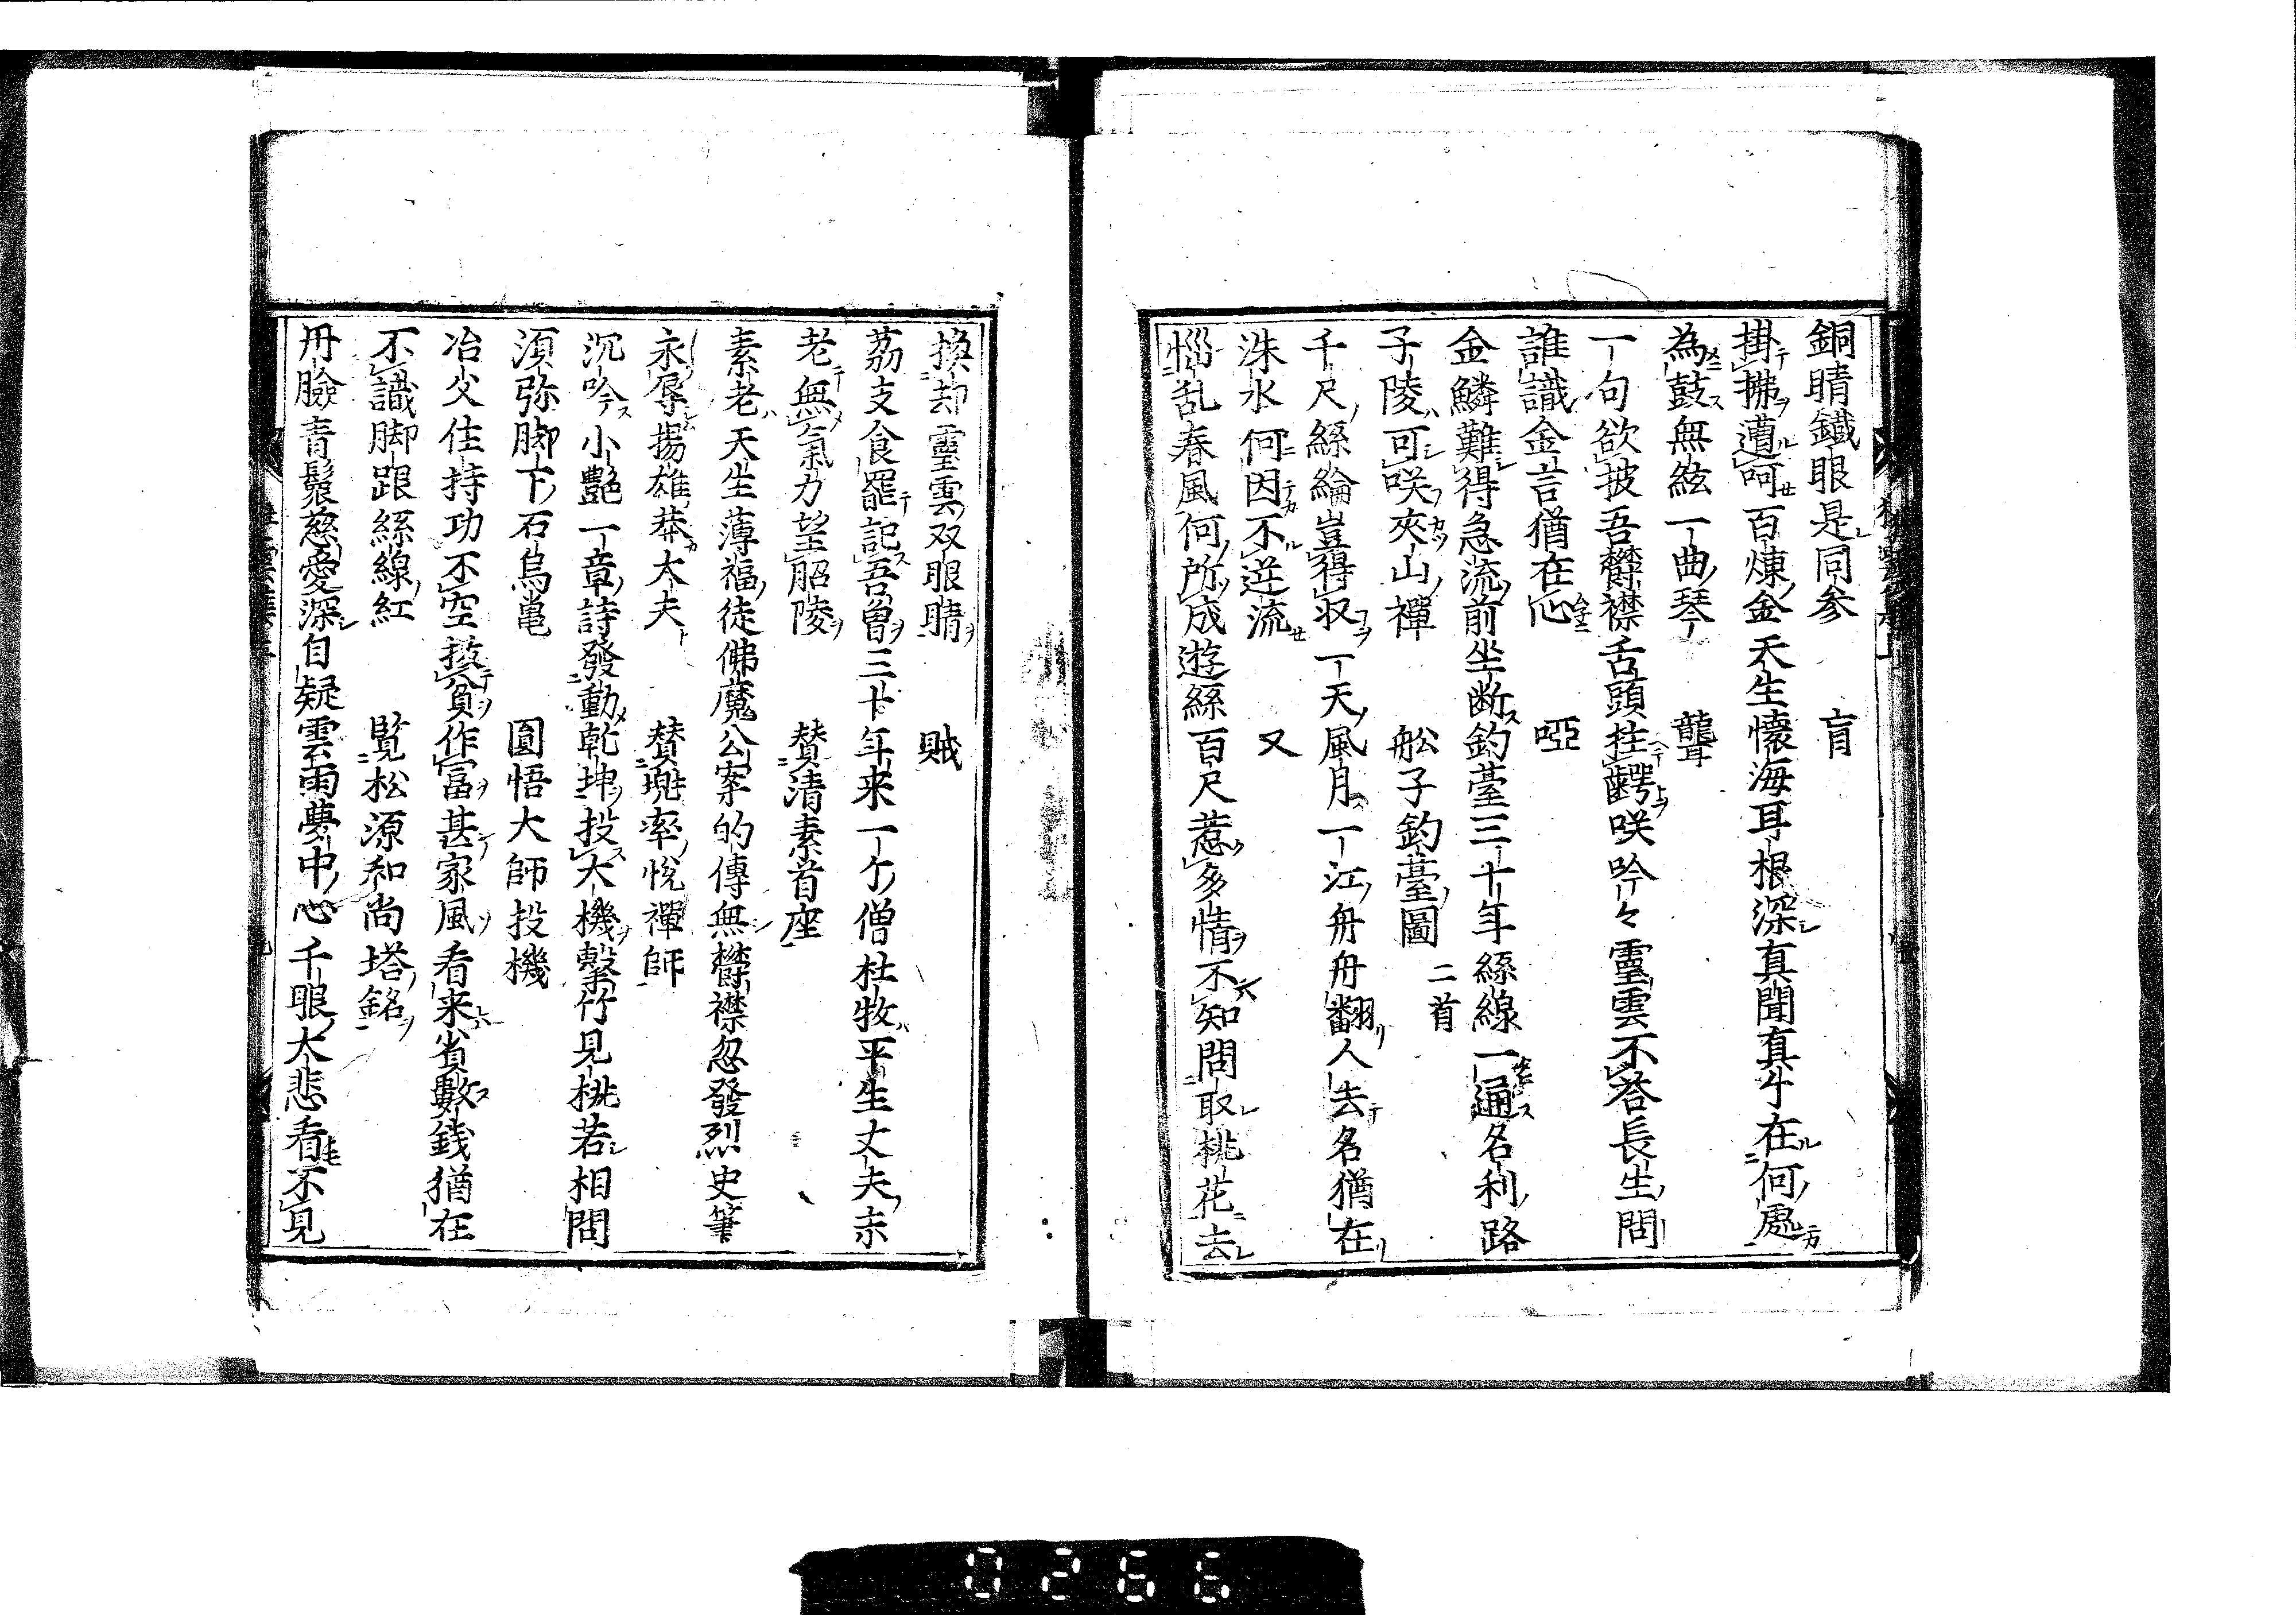 銅睛鐵眼是同参　　盲
掛拂遭呵百煉金天生懐海耳根深真聞真个在何處
為鼓無絃一曲琴　　聾
一句欲披吾欝襟舌頭拄齶咲吟々靈雲不答長生問
誰識金言猶在心　　啞
金鱗難得急流前坐断釣臺三十年絲線一通名利路
子陵可咲夾山禪　　舩子釣臺圖　二首
千尺絲綸豈得収一天風月一江舟舟翻人去名猶在
洙水何因不逆流　　又
惱乱春風何所成遊絲百尺惹多情不知問取桃花去
換却靈雲双眼睛　　賊
茘支食罷記吾曽三十年来一个僧杜牧平生丈夫志
老無氣力望昭陵　　賛清素首座
素老天生薄福徒佛魔公案的傳無欝襟忽發烈史筆
永辱揚雄莽大夫　　賛兠率悦禪師
沉吟小艶一章詩發動乾坤投大機擊竹見桃若相問
湏弥脚下石烏亀　　圓悟大師投機
冶父住持功不空拔貧作冨甚家風看来省數錢猶在
不識脚跟絲線紅　　覧松源和尚塔銘
丹臉青鬟慈愛深自疑雲雨夢中心千眼大悲看不見
0266